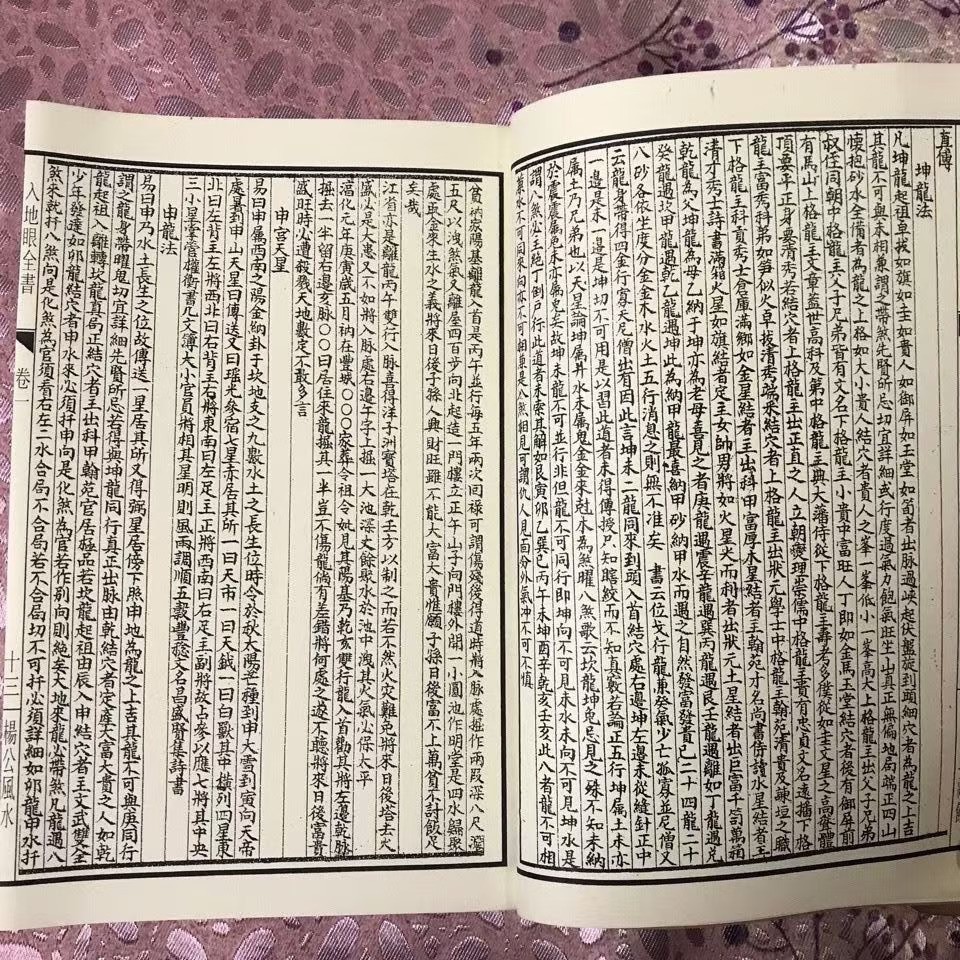 直傳
坤龍法
凡坤龍起祖卓拔如旗如圭如貴人如御屏如玉堂如笏者出脉過峽起伏盤旋到頭細穴者為龍之上吉
其龍不可與未相兼謂之帶煞先賢所忌切宜詳細或行度過氣力飽氣旺坐山真正無偏地局端正四山
懷抱砂水全備者為龍之上格如大小貴人結穴者貴人之峯一峯低小一峯高大上格龍主出父子兄弟
叔侄同朝中格龍主人父子兄弟皆有文名下格龍主小貴中富旺人丁即如金馬玉堂結穴者後有御屏前
有馬山上格龍主文章蓋世高科及第中格龍主典大藩侍從下格龍主壽考多僕從如圭文星之高條體
頂要平正身要清秀若結穴者上格龍主出正直之人立朝燮理崇儒中格龍主貴有忠貞文名遠播下格
龍主富秀科第如笋似火卓拔清秀端來結穴者上格龍主出狀元學士中格龍主翰苑清貴及諫垣之職
下格龍主科貢秀士倉庫滿鄉如金星結者主出科甲富厚木星結者主翰苑才名尚書侍讀水星結者主
清才秀士詩書滿箱火星如旗結者定主女帥男將如火星尖而利者出狀元土星結者出巨富千司萬箱
乾龍為父坤龍為母乙納于坤亦為老母喜見之者庚龍遇震辛龍遇巽丙龍遇艮壬龍遇離如丁龍遇兌
癸龍遇坎甲龍遇乾乙龍遇坤此為納甲龍最喜納甲砂納甲水而遇之自然發富發貴已二十四龍二十
八砂各依坐度分金金木水火土五行消息之則無不准矣 書云位戈行龍兼癸氣少亡孤寡並尼僧又
云龍身帶得四金行寡夫尼僧出有因此言坤未二龍同來到頭入首結穴處右邊坤左邊未從縫針正中
一邊是未一邊是坤切不可用是以習此道者未得傳授只知瞎絞而不知其真數若論正五行坤属土未亦
属土乃兄弟也又以天星論坤属井水未属鬼金金來尅水為煞曜八煞歌云坎龍坤兔忌月之殊不知未納
於震震属兔未亦属兔矣故坤未龍不可並行非但龍不可同行即坤向不可見未水未向不可見坤水是
謂八煞必主絶丁倒戶行此道者未索其解如艮寅卯乙巽巳丙午未坤酉辛乾亥壬亥此八者龍不可相
兼水不可同來向亦不可相兼是八煞相見可謂仇人見面份外氣冲不可不慎
入地眼全書
卷一
十三
楊公風水
五尺以洩煞氣又離屋四百步向北起造一門樓立正午山子向門樓外開一小圓池作明堂是四水歸聚
處取金來生水之義將來日後子孫人興財旺雖不能大富大貴惟願子孫日後富不上萬貧不討飯足
矣哉
江省亦是離龍丙午雙行入脉喜得洋子洲寶塔在乾壬方以制之而若不然火灾難免將來日後塔去火
盛必是大患又不如將入脉處右邊午字上掘一大池深丈餘聚水於池中洩其火氣必保太平
溫化元年庚寅歲五月衲在豐城〇〇〇家葬令祖令她見其陽基乃乾亥雙行龍入首勸其將左邊乾脉
掘去一半留右邊亥脉〇〇曰居住來龍掘其一半豈不傷龍倘有差錯將何處之遂不聽將來日後富貴
盛旺時必遭殺戮天地數定不敢多言
申宮天星
易曰申属西南之陽金納卦于坎地支之九數水土之長生位時令於秋太陽芒種到申大雪到寅向天帝
處暑到申山天星曰傳送又曰瑶光參宿七星赤居其所一曰天市一曰天鉞一曰白獸其中橫列四星東
北曰左背主左將西北曰右背主右將東南曰左足主正將西南曰右足主副將故占參以應七將其中央
三小星掌營權衡書凡文簿大小官員將相其星明則風雨調順五穀豐稔文名昌盛賢集詩書
申龍法
易曰申乃水土長生之位故傳送一星居其所又得弼星居傍下照申地為龍之上吉其龍不可與庚同行
謂之龍身帶曜鬼切宜詳細先賢所忌若得與坤龍同行真正出脉由乾結穴者定產大富大貴之人如乾
龍起祖入離轉坎龍真局正結穴者主出科甲翰苑官居極品若坎龍起祖由辰入申結穴者主文武雙全
少年發達如卯龍結穴者申水來必須扦申向是化煞為官若作别向則絶矣大地來龍必帶煞凡龍遇八
煞來就扦八煞向是化煞為官須看右左二水合局不合局若不合局切不可扦必須詳細如卯龍申水扦